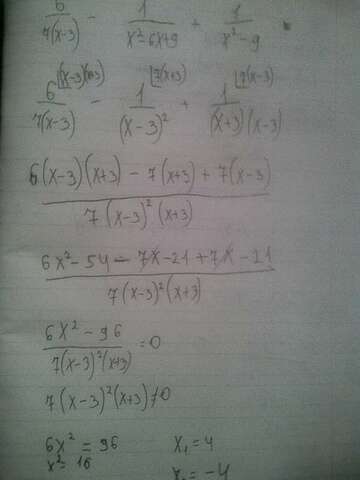 6/7(x-3) - 1/x²-6x+9 + 1/x²-9
6/7(x-3) ⌊(x-3)(x+3) - 1/(x-3)² ⌊7(x+3) + 1/(x+3)(x-3) ⌊7(x-3)
6(x-3)(x+3) - 7(x+3) + 7(x-3) / 7(x-3)²(x+3)
6x² - 54 - 7x - 21 + 7x - 21 / 7(x-3)²(x+3)
6x² - 96 / 7(x-3)²(x+3) = 0
7(x-3)²(x+3) ≠ 0
6x² = 96 x₁ = 4
x² = 16 x₂ = -4